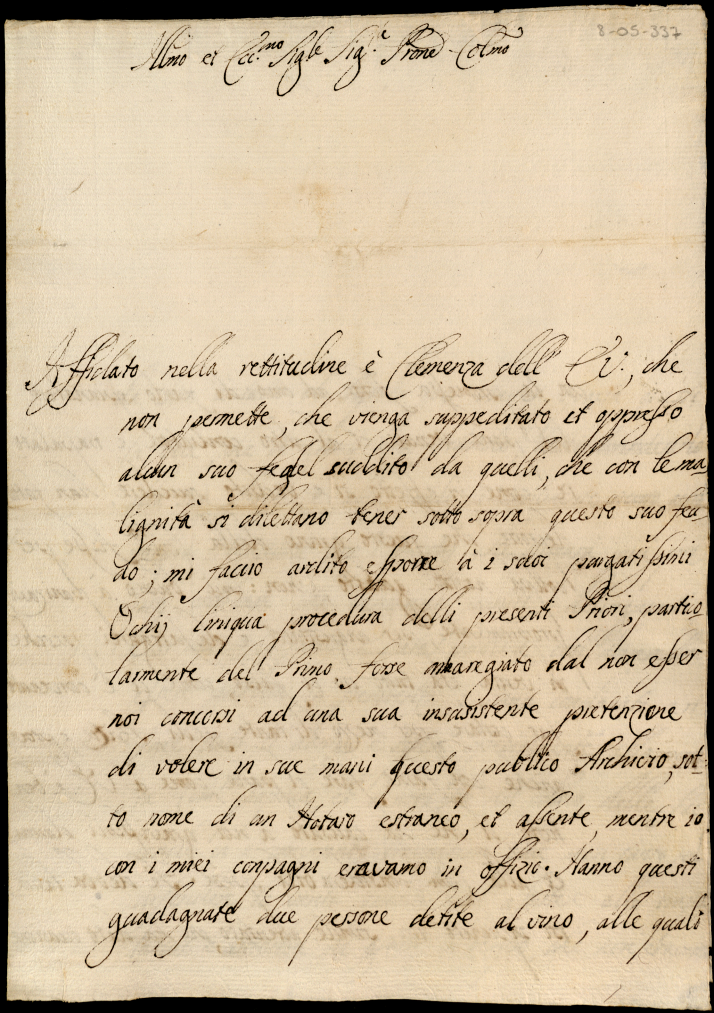 8-05-337
Illmo et Ecc.mo Sigre Sig.r e Prone Colmo
Affidato nella rettitudine è Clemenza dell' E.V., che
non permette, che vienga suppeditato et oppresso
alcun suo fedel suddito da quelli, che con le ma-
lignità si dilettano tener sotto sopra questo suo feu-
do; mi faccio ardito esporre à i suoi purgatissimi
Ochij l'iniqua procedura delli presenti Priori, partico-
larmente del Primo, forse amaregiato dal non esser
noi concorsi ad una sua insusistente pretenzione
di volere in sue mani questo publico Archivio, sot-
to nome di un Notaro estraneo, et assente, mentre io
con i miei conpagni eravamo in offizio. Hanno questi
guadagnate due persone detite al vino, alle quali